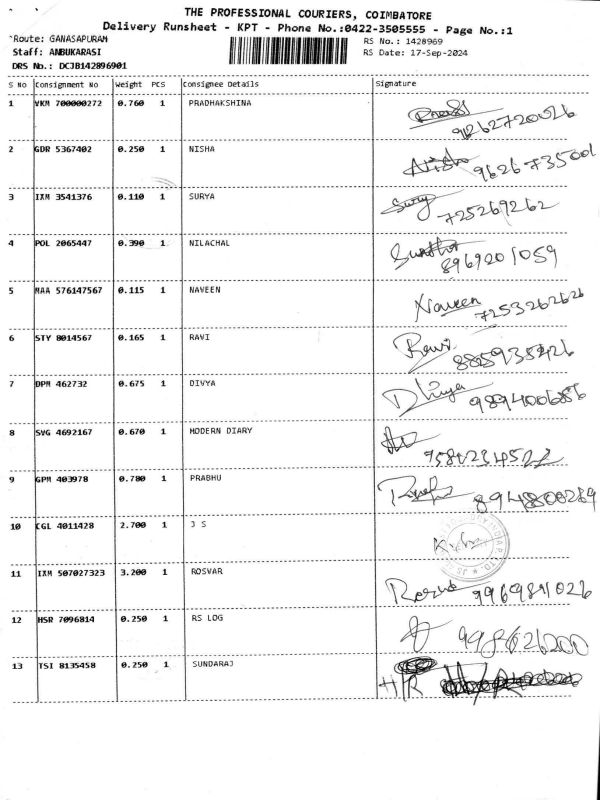 THE PROFESSIONAL COURIERS, COIMBATORE
Delivery Runsheet - KPT - Phone No.:0422-3505555 - Page No.:1
Route: GANASAPURAM RS No.: 1428969
Staff: ANBUKARASI RS Date: 17-Sep-2024
DRS No.: DCJB142896901
S No Consignment No Weight PCS Consignee Details Signature
1 VKM 700000272 0.760 1 PRADHAKSHINA
9262720026
2 GDR 5367402 0.250 1 NISHA Nisha
9626735001
3 IXM 3541376 0.110 1 SURYA Surya
725269262
4 POL 2065447 0.390 1 NILACHAL
8969201059
5 MAA 576147567 0.115 1 NAVEEN Naveen
7253262626
6 STY 8014567 0.165 1 RAVI Ravi
8859935426
7 DPM 462732 0.675 1 DIVYA Dhivya
9894400686
8 SVG 4692167 0.670 1 MODERN DIARY
9 GPM 403978 0.780 1 PRABHU
8948000269
10 CGL 4011428 2.700 1 J S
11 IXM 507027323 3.200 1 ROSVAR
9969841026
12 HSR 7096814 0.250 1 RS LOG
998626200
13 TSI 8135458 0.250 1 SUNDARAJ